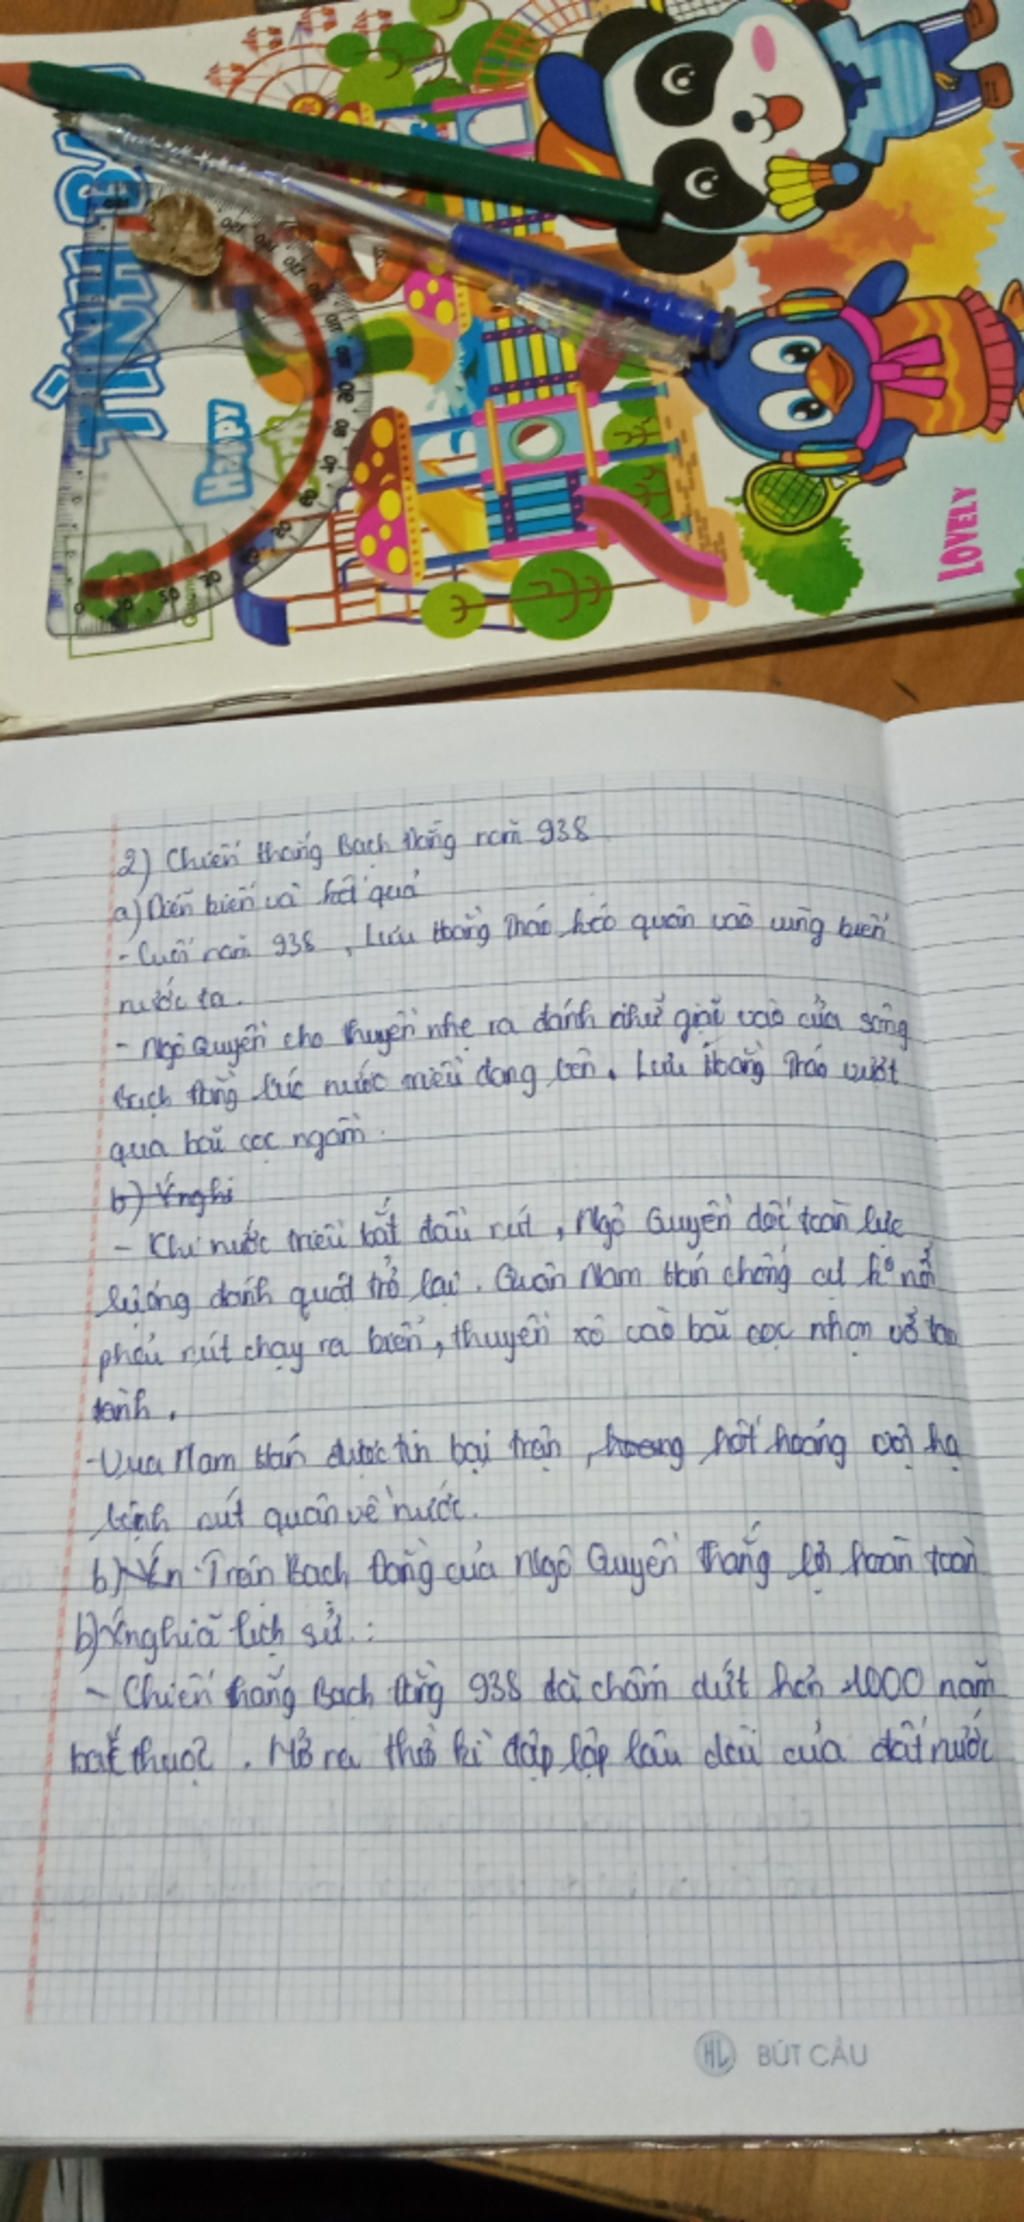 TÌNH BẠ
Happy
LOVELY
2) Chiến thắng Bạch Đằng năm 938
a) Diễn biến và kết quả
- Cuối năm 938, Lưu Hoằng Tháo kéo quân vào vùng biển
nước ta.
- Ngô Quyền cho thuyền nhẹ ra đánh nhử giặc vào cửa sông
Bạch Đằng lúc nước triều dâng lên. Lưu Hoằng Tháo vượt
qua bãi cọc ngầm.
b) Ý nghi
- Khi nước triều bắt đầu rút, Ngô Quyền dốc toàn lực
lượng đánh quật trở lại. Quân Nam Hán chống cự không nổi
phải rút chạy ra biển, thuyền xô vào bãi cọc nhọn vỡ tan
tành.
- Vua Nam Hán được tin bại trận, hoang hốt hoảng vội hạ
lệnh rút quân về nước.
b) Trận Bạch Đằng của Ngô Quyền thắng lợi hoàn toàn
b) Ý nghĩa lịch sử:
- Chiến thắng Bạch Đằng 938 đã chấm dứt hơn 1000 năm
bắt thuộc. Mở ra thời kì độc lập lâu dài của đất nước
HL BÚT CẦU